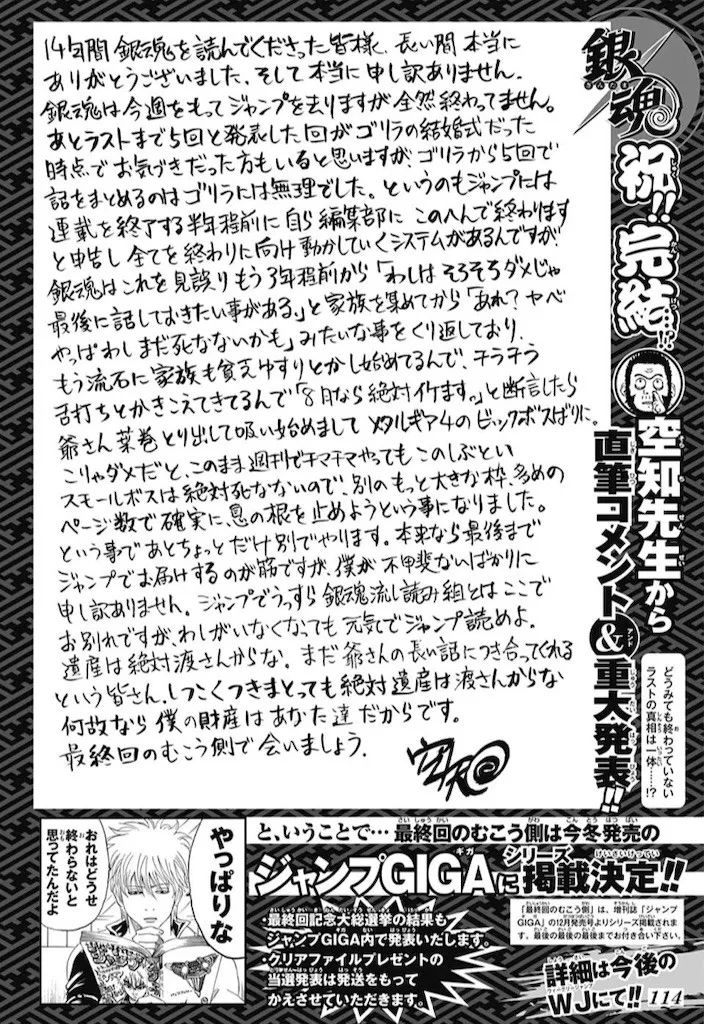 銀魂
祝!!完結!!
空知先生から
直筆コメント&重大発表!!
どうみても終わっていない
ラストの真相は一体……!?
14年間銀魂を読んでくださった皆様、長い間本当に
ありがとうございました、そして本当に申し訳ありません。
銀魂は今週をもってジャンプを去りますが全然終わってません。
あとラストまで5回と発表した回がゴリラの結婚式だった
時点でお気づきだった方もいると思いますが、ゴリラから5回で
話をまとめるのはゴリラには無理でした。というのもジャンプには
連載を終了する半年程前に自ら編集部に このへんで終わります
と申告し全てを終わりに向け動かしていくシステムがあるんですが
銀魂はこれを見誤りもう2年程前から「わしはそろそろダメじゃ
最後に話しておきたい事がある。」と家族を集めてから「あれ?ヤベ
やっぱわしまだ死なないかも」みたいな事をくり返しており、
もう流石に家族も貧乏ゆすりとかし始めてるんで、チラチラ
舌打ちとかきこえてきてるんで「8月なら絶対イケます。」と断言したら
爺さん葉巻とり出して吸い始めまして メタルギア4のビックボスばりに。
こりゃダメだと、このまま週刊でチマチマやってもこのしぶとい
スモールボスは絶対死なないので、別のもっと大きな枠、多めの
ページ数で確実に息の根を止めようという事になりました。
という事であとちょっとだけ別でやります。本来なら最後まで
ジャンプでお届けするのが筋ですが、僕が不甲斐ないばかりに
申し訳ありません。ジャンプでうっすら銀魂流し読み組とはここで
お別れですが、わしがいなくなっても元気でジャンプ読めよ。
遺産は絶対渡さんからな。まだ爺さんの長い話につき合ってくれる
という皆さん、しつこくつきまとっても絶対遺産は渡さんからな
何故なら僕の財産はあなた達だからです。
最終回のむこう側で会いましょう。
やっぱりな
おれはどうせ
終わらないと
思ってたんだよ
と、いうことで…最終回のむこう側は今冬発売の
ジャンプGIGAにシリーズ掲載決定!!
・最終回記念大総選挙の結果も
ジャンプGIGA内で発表いたします。
・クリアファイルプレゼントの
当選発表は発送をもって
かえさせていただきます。
「最終回のむこう側」は、増刊誌「ジャンプ
GIGA」の今冬発売号よりシリーズ掲載されま
す。最後の最後の最後までお付き合い下さい。
詳細は今後の
WJにて!!
114